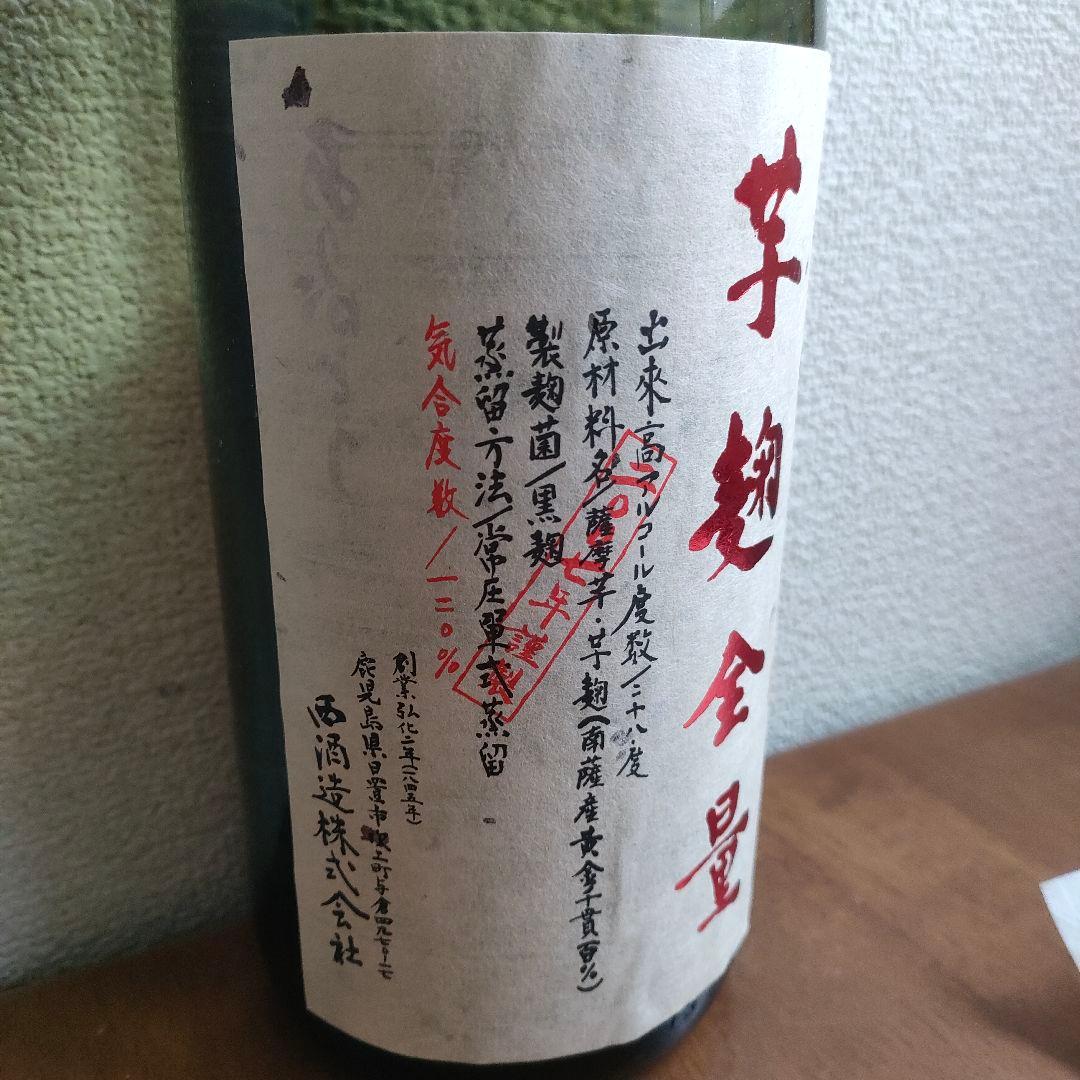 芋麹全量
出來高アルコール度数/二十八度
原材料名/薩摩芋・芋麹(南薩産黄金千貫百%)
製麹菌/黒麹
蒸留方法/常圧單式蒸留
気合度数/一二〇%
二〇〇七年謹製
創業弘化二年(一八四五年)
鹿児島県日置市吹上町与倉四九七〇-一七
西酒造株式会社